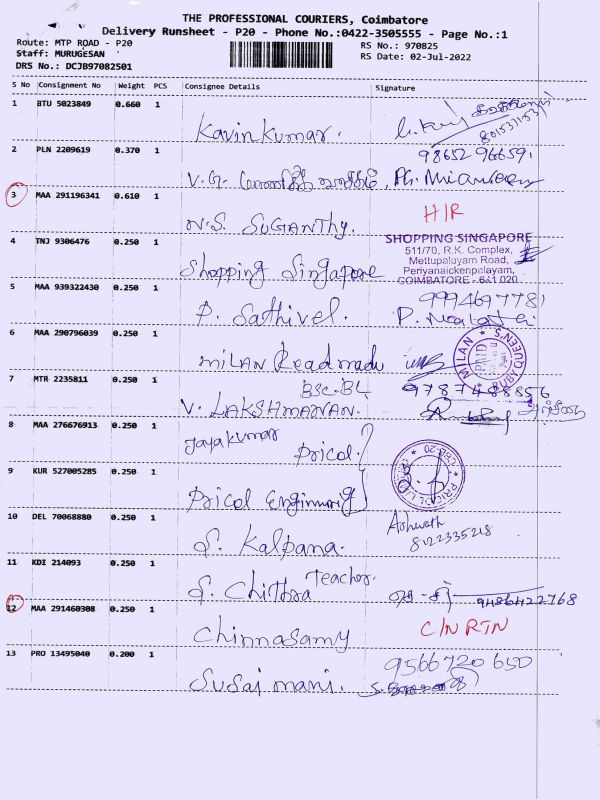 THE PROFESSIONAL COURIERS, Coimbatore
Delivery Runsheet - P20 - Phone No.:0422-3505555 - Page No.:1
Route: MTP ROAD - P20
RS No.: 970825
Staff: MURUGESAN
RS Date: 02-Jul-2022
DRS No.: DCJB97082501
S No Consignment No Weight PCS Consignee Details Signature
1 BTU 5023849 0.660 1
Kavinkumar.
2 PLN 2209619 0.370 1
98652 96659
V.G.
3 MAA 291196341 0.610 1
H/R
N.S. SUGANTHY.
4 TNJ 9306476 0.250 1
SHOPPING SINGAPORE
511/70, R.K. Complex,
Mettupalayam Road,
Periyanaickenpalayam,
COIMBATORE - 641 020
Shopping Singapore
5 MAA 939322430 0.250 1
9994697781
P. Sathivel.
6 MAA 290796039 0.250 1
MILAN Readmadu
MILAN RUBY QUEEN'S
7 MTR 2235811 0.250 1
BSC.BL
9787488856
V. LAKSHMANAN.
8 MAA 276676913 0.250 1
Jayakumar Pricol
9 KUR 527005285 0.250 1
Pricol Enginnuring
10 DEL 70068880 0.250 1
Ashwath
8122335218
S. Kalpana.
11 KDI 214093 0.250 1
Teacher.
S. Chithra
9486422768
12 MAA 291460308 0.250 1
C/N RTN
Chinnasamy
13 PRO 13495040 0.200 1
9566720650
Susai mani.